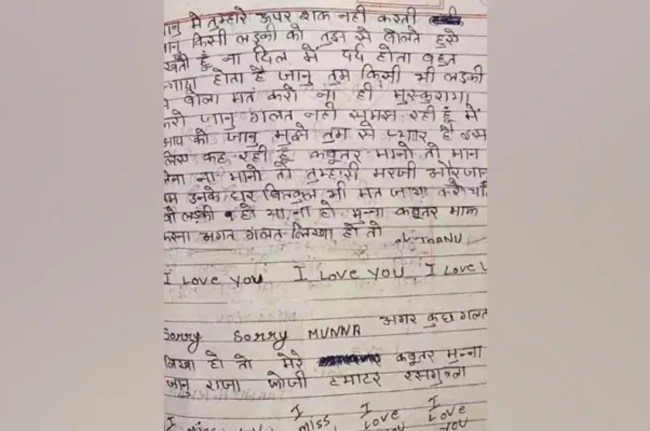 जानु मे तुम्हारे ऊपर शक नही करती
जानु किसी लड़की को तुझ से बोलते हुऐ
देखती हूँ ना दिल में दर्द होता बहुत
होता है जानु तुम किसी भी लड़की
बोला मत करो ना ही मुस्कुराया
करो जानु गलत नही समझ रही हूँ में
आप को जानु मुझे तुम से प्यार है इस
लिए कह रही हूँ कबूतर मानो तो मान
लेना ना मानो तो तुम्हारी मरजी और जानु
उनके घर बिलकुल भी मत जाया करो चाहे
वो लड़की हो या ना हो मुन्ना कबूतर माफ
करना अगर गलत लिखा हो तो
I LOVE YOU I LOVE YOU I LOVE
Sorry Sorry MUNNA अगर कुछ गलत
लिखा हो तो मेरे कबूतर मुन्ना
जानु राजा जोजी टमाटर रसगुल्ला
I I I
MISS LOVE LOVE
YOU YOU